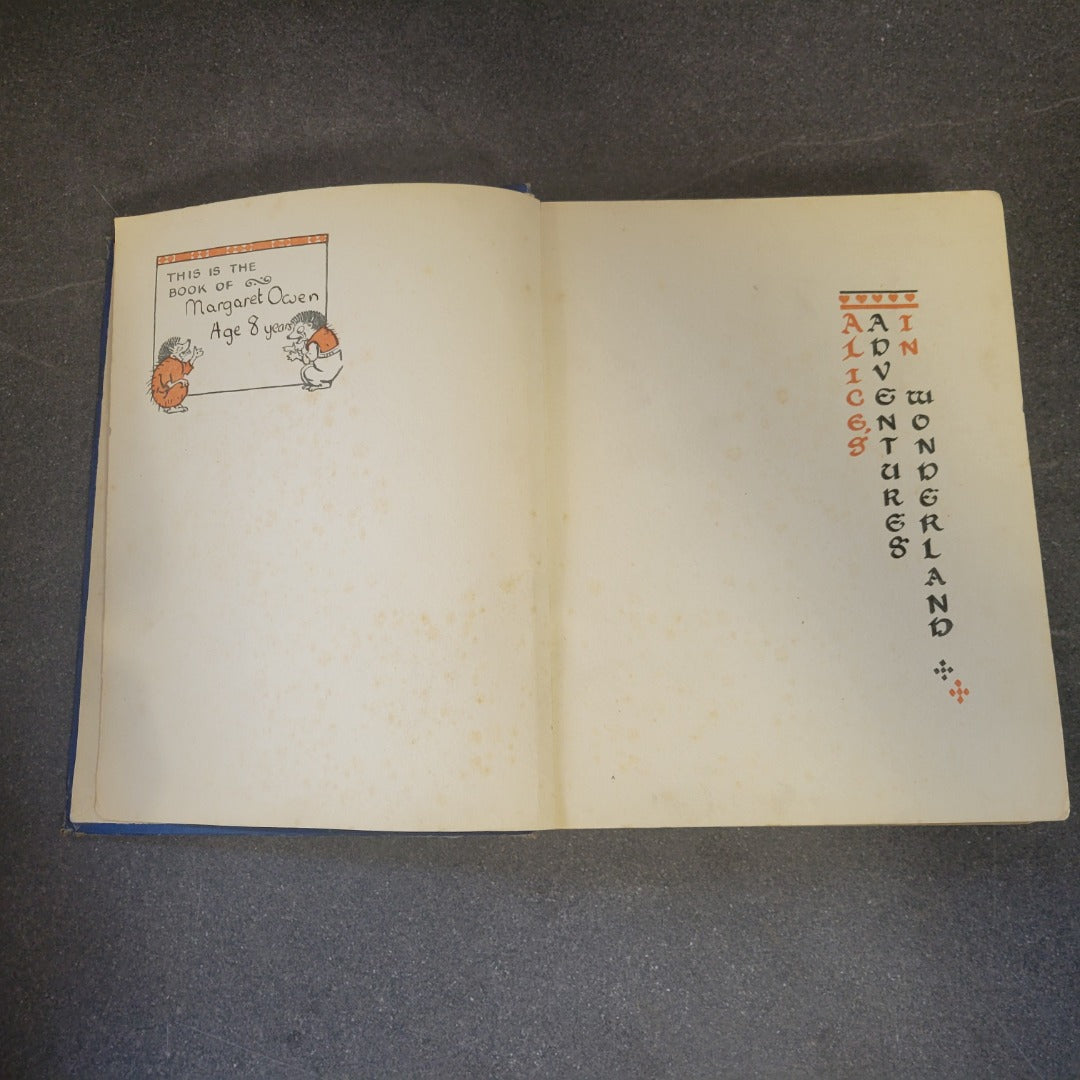 THIS IS THE
BOOK OF
Margaret Owen
Age 8 years
ALICE'S
ADVENTURES
IN
WONDERLAND